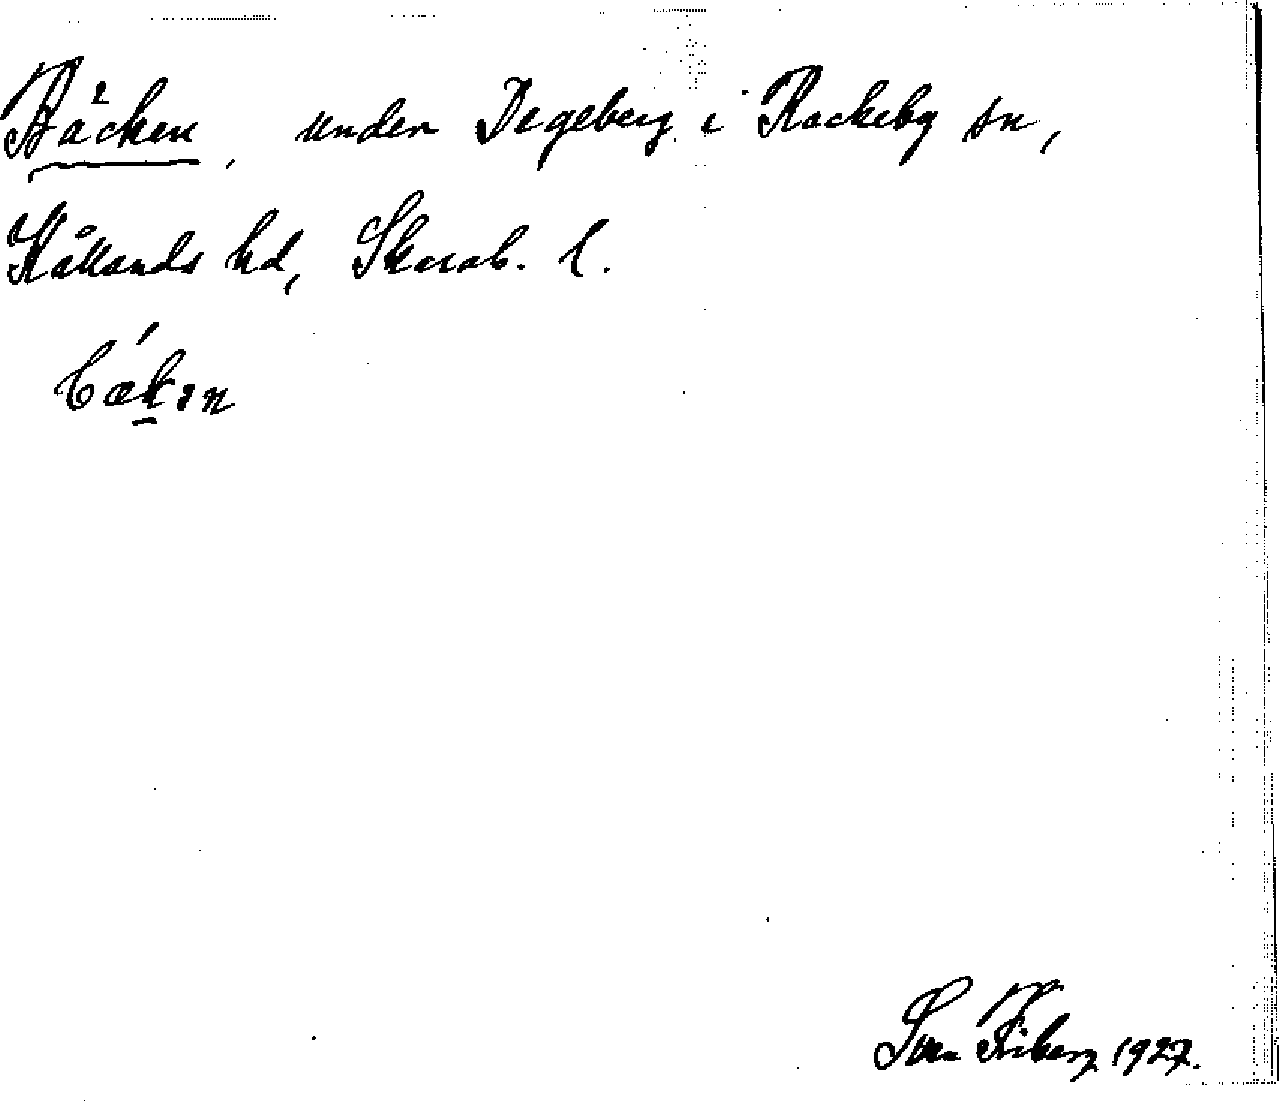 Bäcken, under Degeberg i Rackeby sn,
Kållands hd, Skarab. l.
bækən
Sven Fribery 1927.